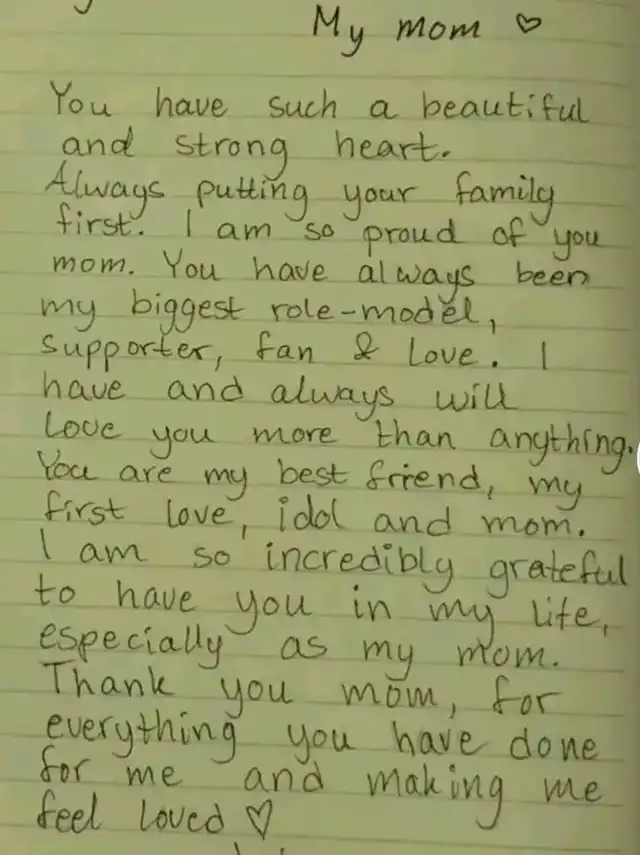 My mom ♡
You have such a beautiful
and strong heart.
Always putting your family
first. I am so proud of you
mom. You have always been
my biggest role-model,
supporter, fan & love. I
have and always will
Love you more than anything.
You are my best friend, my
first love, idol and mom.
I am so incredibly grateful
to have you in my life,
especially as my mom.
Thank you mom, for
everything you have done
for me and making me
feel loved ♡